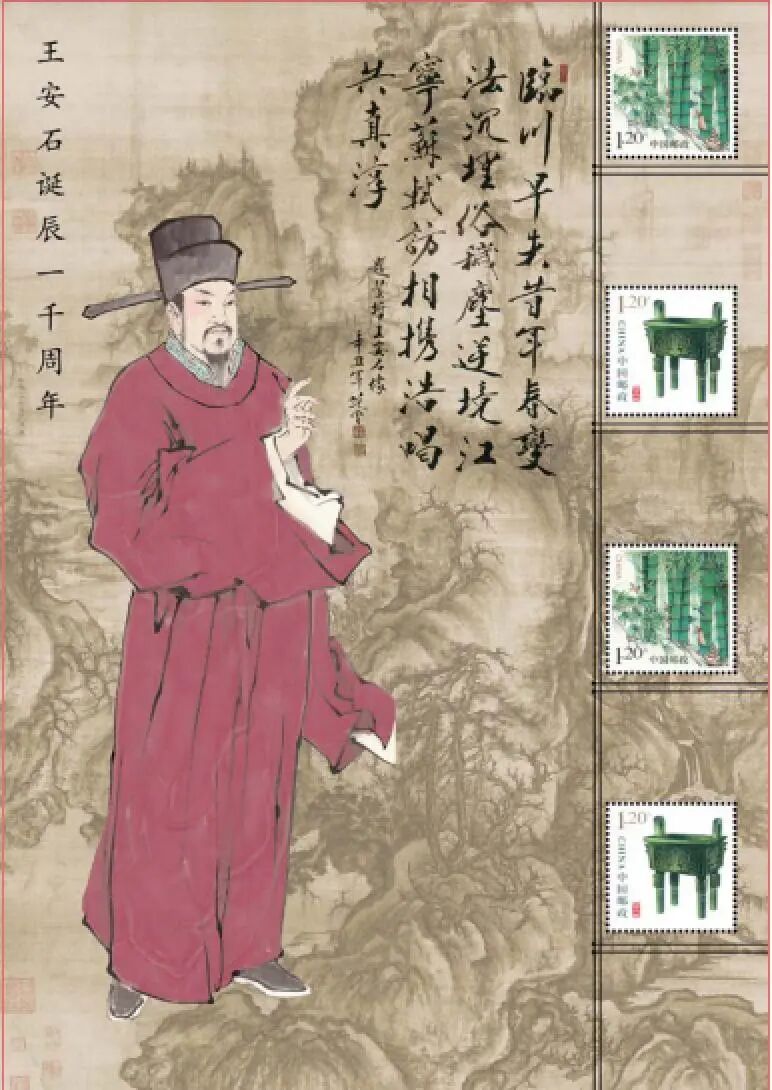 王安石诞辰一千周年
臨川早失昔年春變
法沉埋俗穢塵逆境江
寧蘇軾訪相携浩唱
共真淳
王安石像
辛丑年
CHINA
1.20
中国邮政
1.20
CHINA 中国邮政
CHINA
1.20
中国邮政
1.20
CHINA 中国邮政